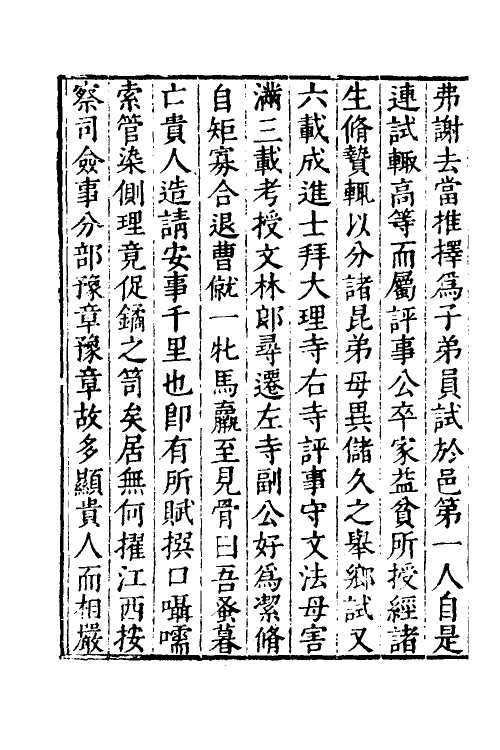 弗謝去當推擇爲子弟員試於邑第一人自是
連試輙高等而屬評事公卒家益貧所授經諸
生脩贄輒以分諸昆弟母異儲久之舉鄉試又
六載成進士拜大理寺右寺評事守文法毋害
滿三載考授文林郎尋遷左寺副公好爲潔脩
自矩寡合退曹僦一牝馬羸至見骨曰吾蚤暮
亡貴人造請安事千里也卽有所賦撰口囁嚅
索管染側理竟促鐍之笥矣居無何擢江西按
察司僉事分部豫章豫章故多顯貴人而相嚴